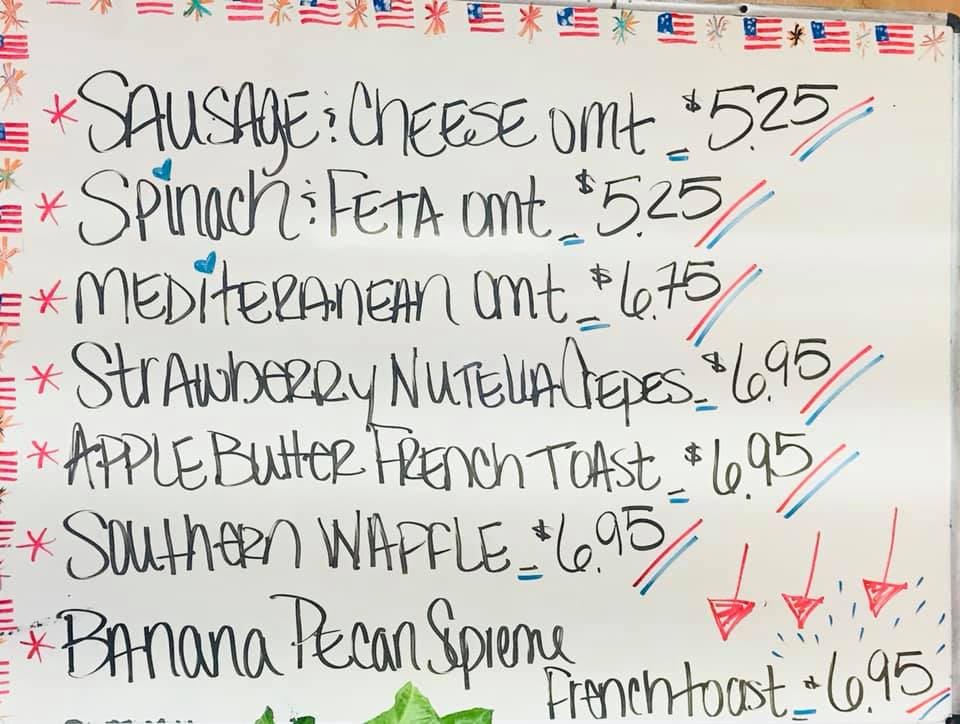 * SAUSAGE & CHEESE omt - $5.25
* Spinach & FETA omt - $5.25
* MEDITERANEAN omt - $6.75
* StrAwbERRy NUTELLA CrEpES - $6.95
* APPLE ButtER FRENCh TOASt - $6.95
* SouthERn WAFFLE - $6.95
* BAnana PEcan Supreme
Frenchtoast - $6.95